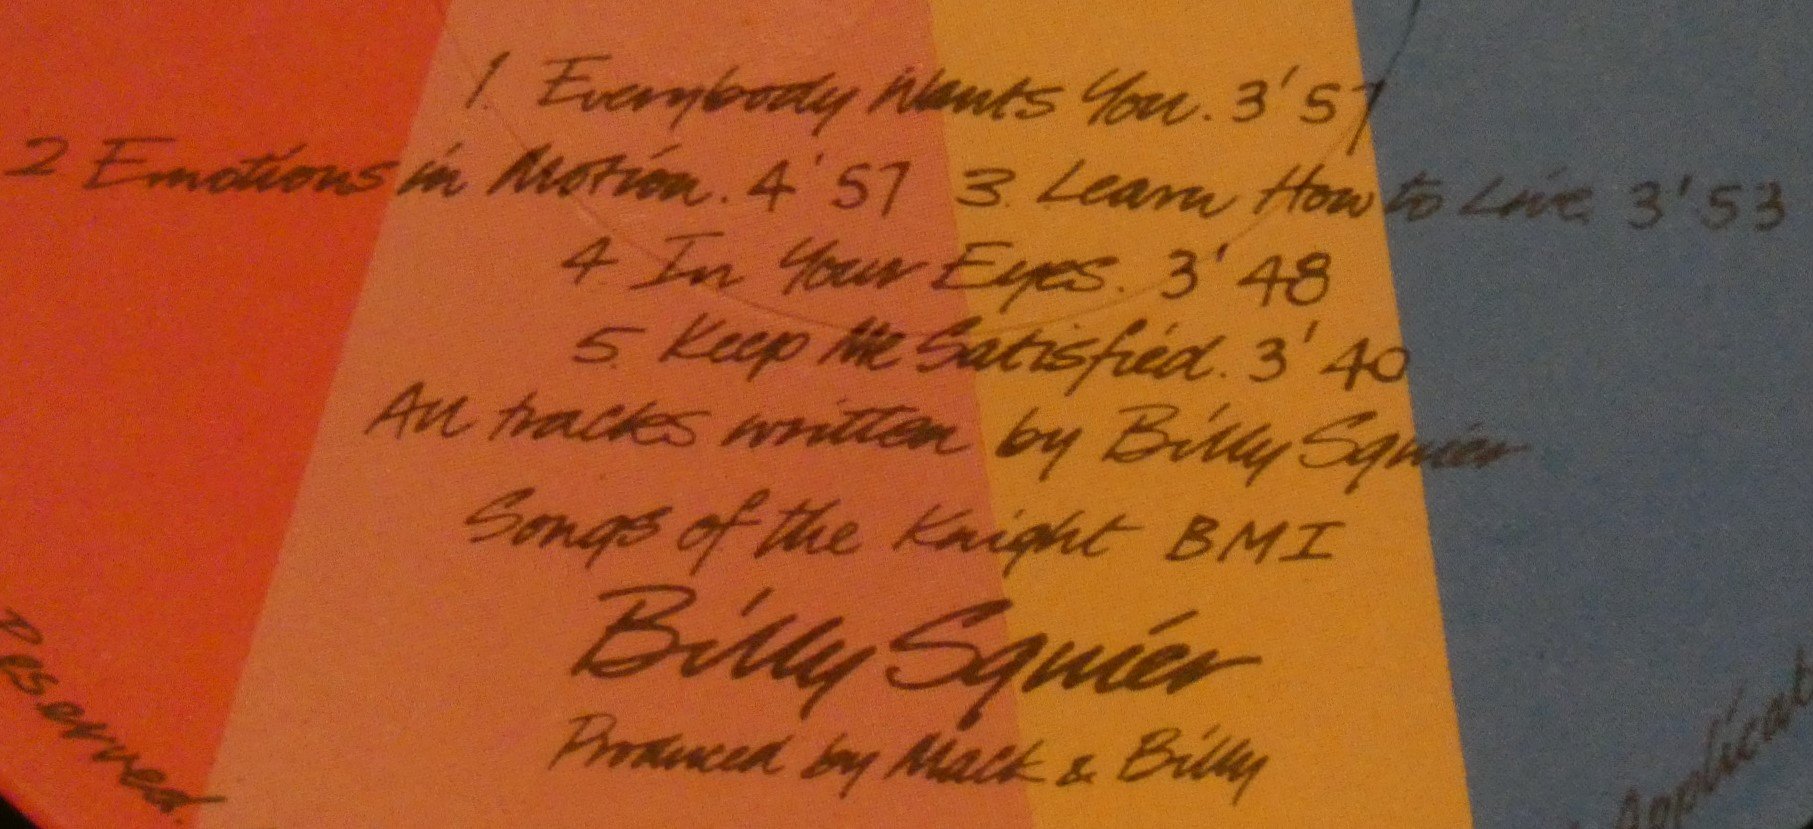 1. Everybody Wants You. 3'57
2 Emotions in Motion. 4'57 3. Learn How to Live 3'53
4. In Your Eyes. 3'48
5. Keep Me Satisfied. 3'40
All tracks written by Billy Squier
Songs of the Knight BMI
Billy Squier
Produced by Mack & Billy
Reserved.